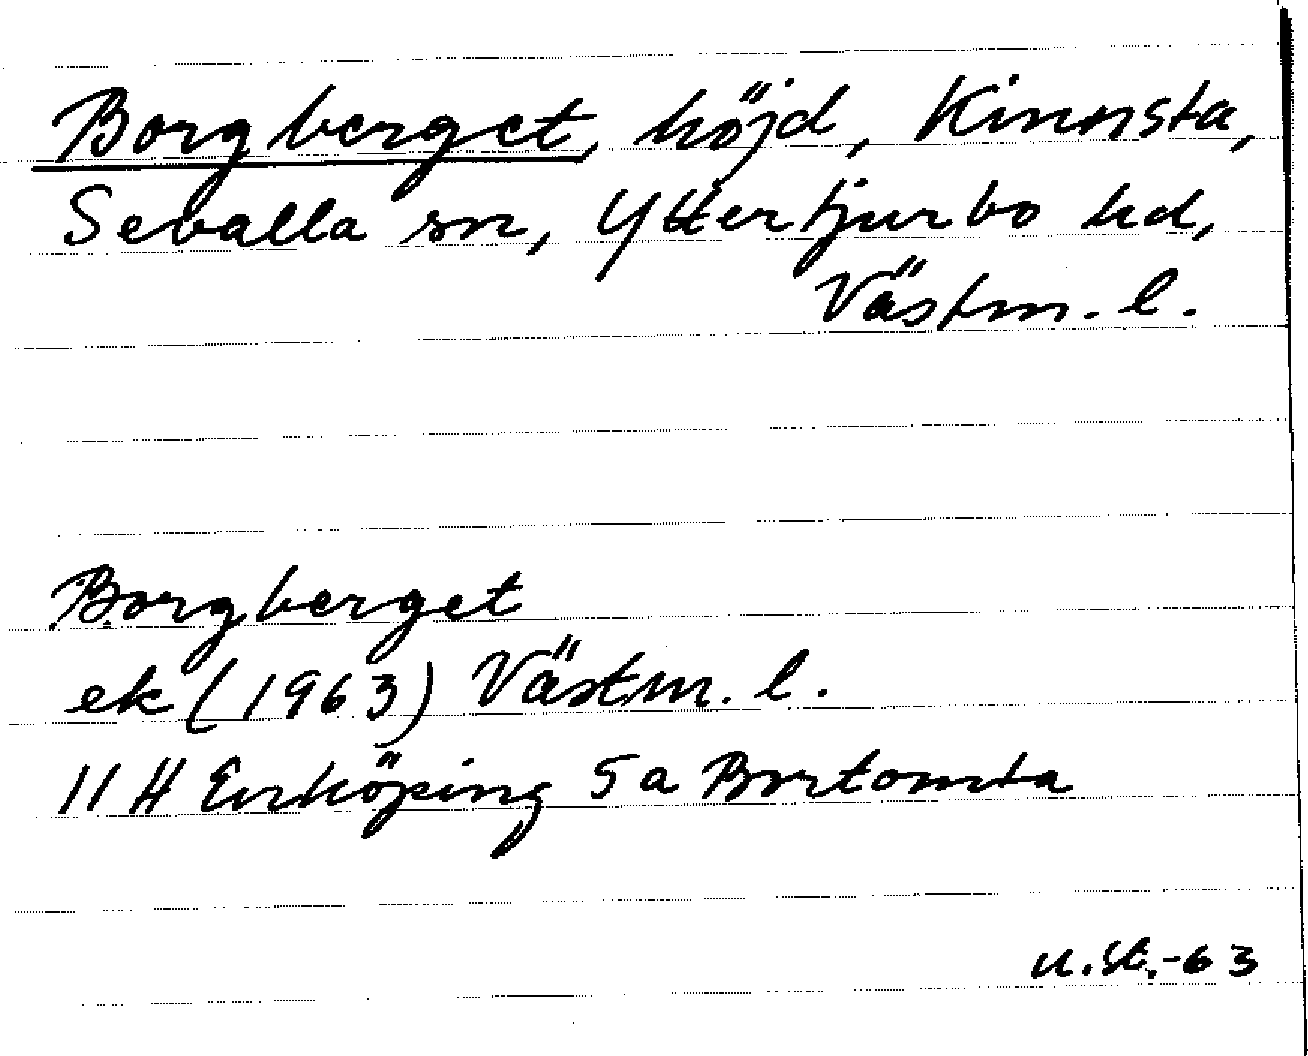 Borgberget, höjd, Kinnsta,
Sevalla sn, Yttertjurbo hd,
Västm. l.
Borgberget
ek (1963) Västm. l.
11 H Enköping 5 a Bortomta
u.st.-63